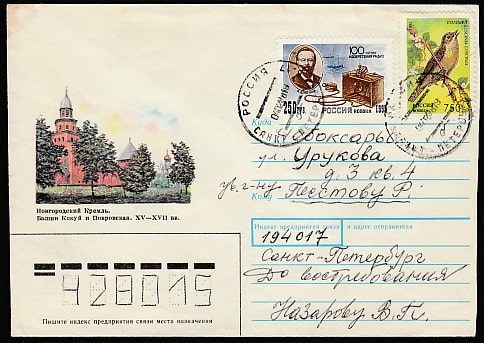 100-летие
изобретения радио
250 руб.
РОССИЯ ROSSIJA 1995
СОЛОВЕЙ
РОССИЯ ROSSIJA
750
РОССИЯ
САНКТ-ПЕТЕРБУРГ
Куда
г. Чебоксары
ул. Урукова
д. 3 кв. 4
Кому
ув. г-ну Пестову Р.
Новгородский Кремль.
Башни Кокуй и Покровская. XV—XVII вв.
Индекс предприятия связи и адрес отправителя
194017
Санкт-Петербург
До востребования
Назарову В.П.
428015
Пишите индекс предприятия связи места назначения